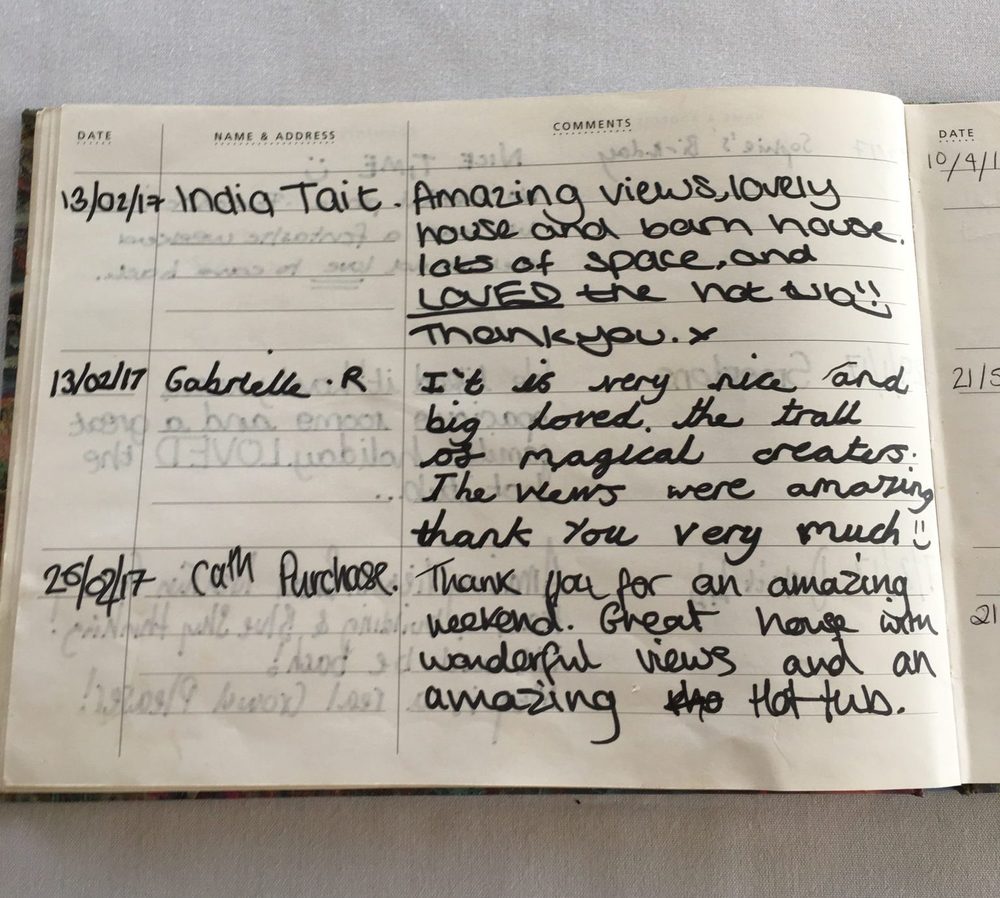 DATE NAME & ADDRESS COMMENTS
13/02/17 India Tait. Amazing views, lovely
house and barn house.
lots of space, and
LOVED the hot tub!!
Thankyou. x
13/02/17 Gabrielle . R It's very nice and
big loved, the trall
of magical creaters.
The views were amazing
thank You very much!!
Cath Purchase. Thank you for an amazing
weekend. Great house with
wonderful views and an
amazing Hot tub.
DATE
10/4/1
21/5
21